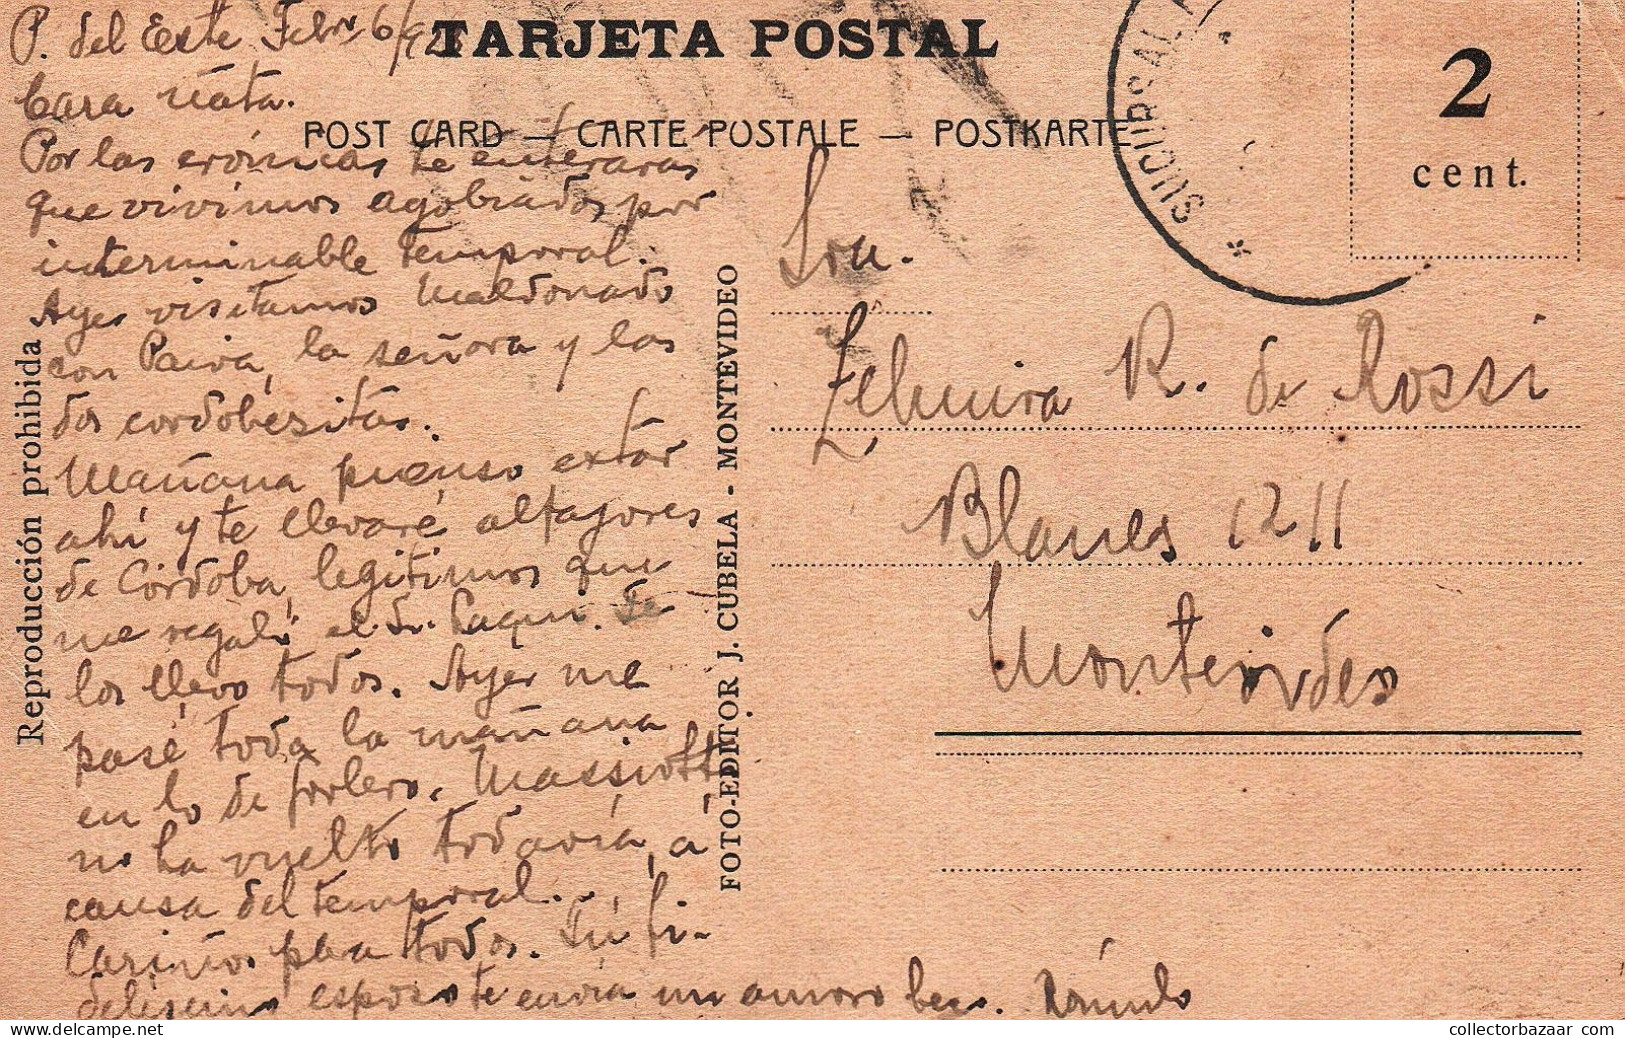 P. del Este Febr 6/928
TARJETA POSTAL
POST CARD — CARTE POSTALE — POSTKARTE
SUCURSAL
2
cent.
Cara ñata.
Por las crónicas te enteraras
que vivimos agobiados por
interminable temporal.
Ayer visitamos Maldonado
con Paiva, la señora y las
dos cordobesitas.
Mañana pienso estar
ahí y te llevaré alfajores
de Córdoba, legitimos que
me regaló el Dr. Te
los llevo todos. Ayer me
pasé toda la mañana
en lo de Forlero. Massiotti
no ha vuelto todavía, á
causa del temporal.
Cariños para todos. Tú fi-
delisimo esposo te envia un amoro beso. Rómulo
Reproducción prohibida
FOTO-EDITOR J. CUBELA - MONTEVIDEO
Sra.
Zelmira R. de Rossi
Blanes 1211
Montevideo
collectorbazaar.com